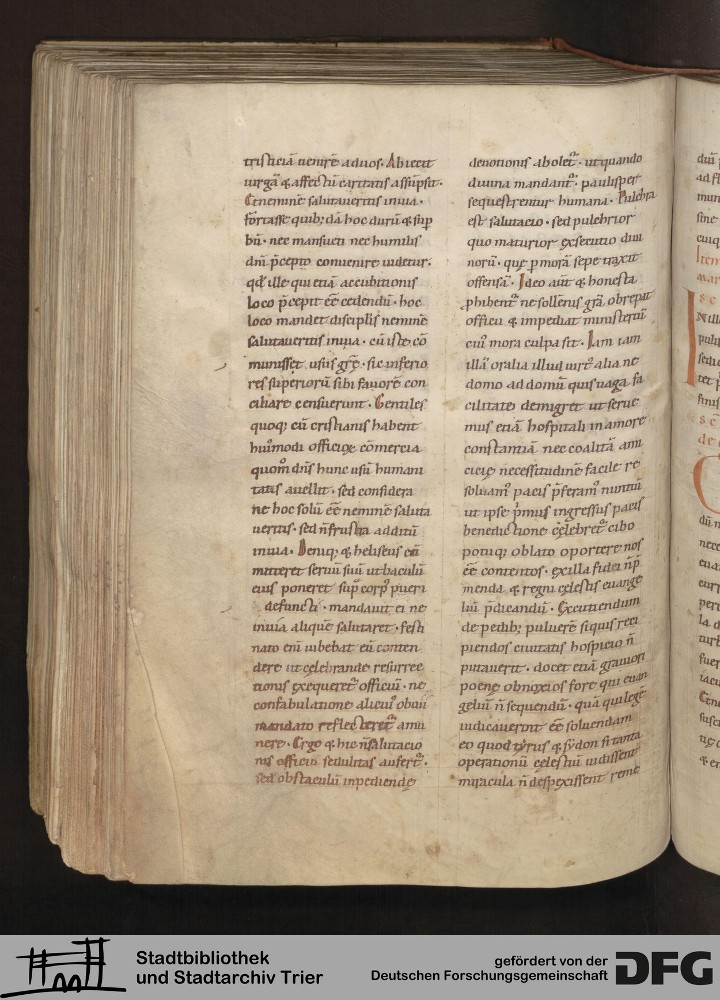 tristiciā uenire ad uos. Abiecit
uirgā & affectū caritatis assūpsit.
Et neminē salutaueritis in uia.
fortasse quib; dā hoc durū & sup
bū. nec mansueti nec humilis
dn̄i p̄cepto conuenire uidetur.
qd̄ ille qui etiā accubitionis
loco p̄cepit eē cedendū. hoc
loco mandet discip̄lis neminē
salutaueritis in uia. cū iste cō
munis sit usus grē. sic inferio
res superiorū sibi fauorē con
ciliare censuerunt. Gentiles
quoq; cū cristianis habent
hui'modi officioꝝ cōmercia
quom̊ dn̄s hunc usū humani
tatis auellit. sed considera
ne hoc solū eē neminē saluta
ueritis. sed n̄ frustra additū
in uia. Deniq; & heliseus cū
mitteret seruū suū ut baculū
eius poneret sup̄ corp' pueri
defuncti. mandauit ei ne
in uia aliquē salutaret. festi
nato enī iubebat eū conten
dere ut celebrande resurrec
tionis exequeret̄ officiū. ne
confabulatione alicui' obuii
mandato reflecteret̄ a mu
nere. Ergo & hic n̄ salutacio
nis officii sedulitas aufert̄.
sed obstaculū inpediende
deuotionis abolet̄. ut quando
diuina mandant̄. paulisper
sequestrentur humana. Pulchra
est salutacio. sed pulchrior
quo maturior exsecutio diui
norū. que p morā sepe traxit
offensā. Ideo aūt & honesta
p̄hibent̄ ne sollēnis grā obrepat
officii & impediat ministeriū
cui' mora culpa sit. Iam iam
illa' oralia illud uirt' alia ne
domo ad domū quis uaga fa
cilitate demigret ut serue
mus etiā hospitali in amore
constantiā nec coalitā ami
cicie necessitudinē facile re
soluam' pacis p̄feram' nuntiū
ut ipse p̄mus ingressus pacis
benedictione celebret̄ cibo
potuq; oblato oportere nos
eē contentos. ex illa fidei n̄ p̄
menda & regni celestis euange
liū p̄dicandū. Excutiendum
de pedib; puluerē si quis reci
piendos ciuitatis hospicio n̄
putauerit. docet etiā grauiori
poene obnoxios fore qui euan
geliū n̄ sequendū. quā qui legē
iudicauerint eē soluendam
eo quod tyrus & sydon si tanta
operationū celestiū uidissent
miracula n̄ despexissent reme
Stadtbibliothek
und Stadtarchiv Trier
gefördert von der
Deutschen Forschungsgemeinschaft
DFG